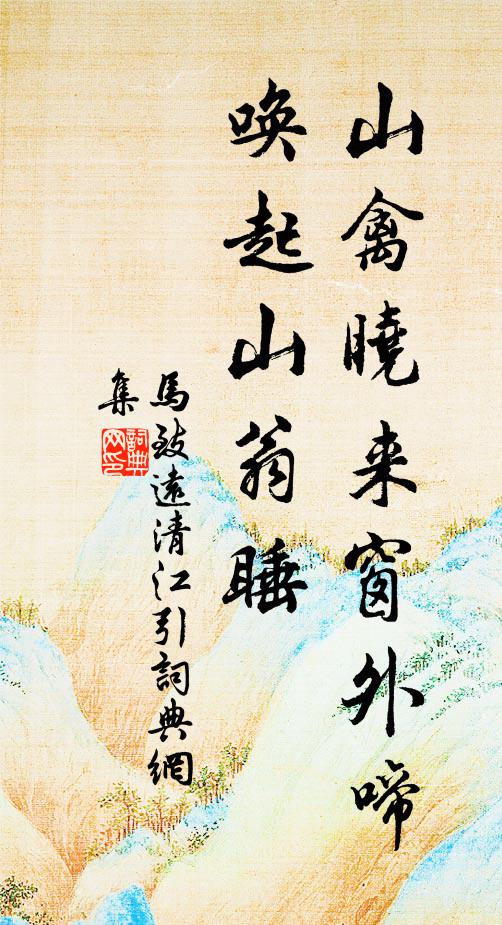 山禽曉来窗外啼
唤起山翁睡
馬致遠清江引詞典網
集
詞典
网印